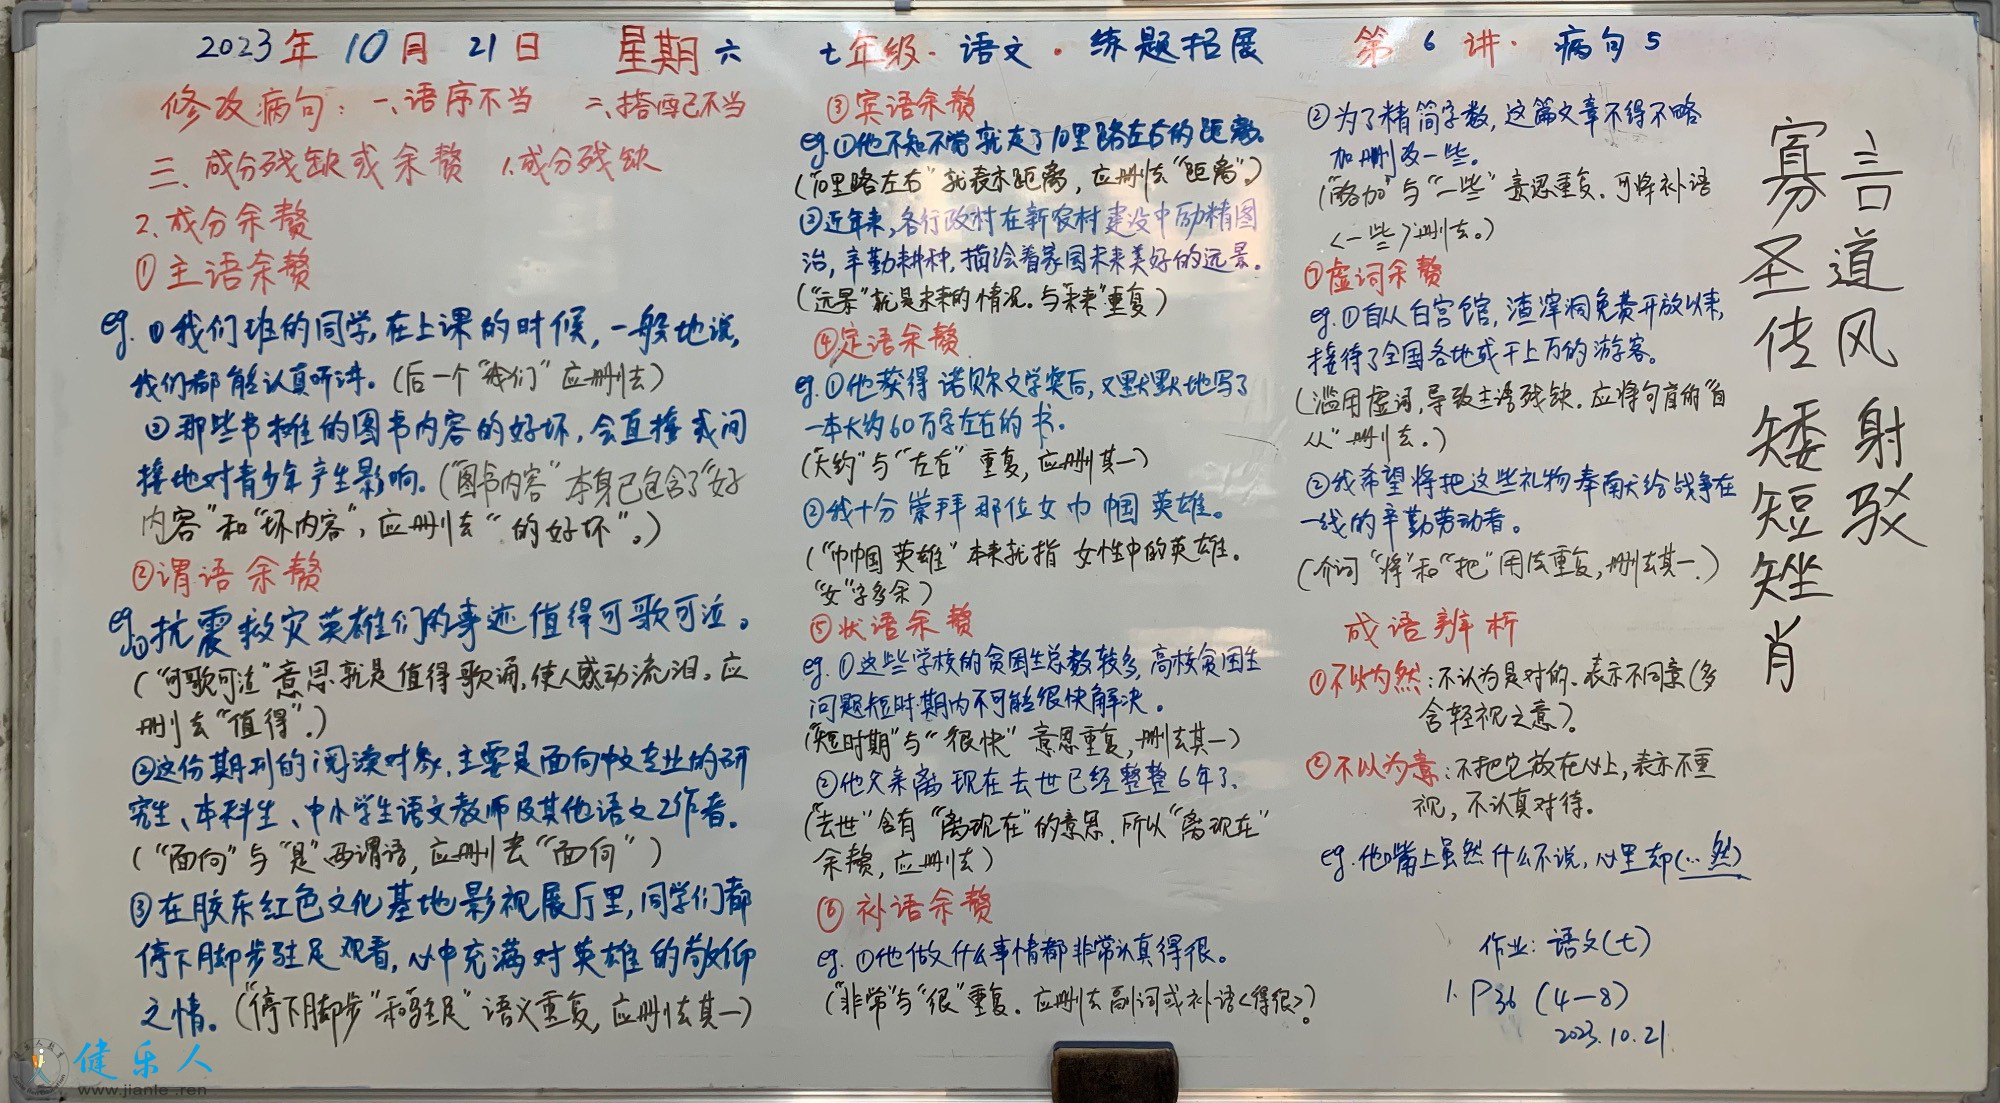 2023年10月21日 星期六 七年级·语文·练题拓展 第6讲·病句5
修改病句：一、语序不当 二、搭配不当
三、成分残缺或余赘 1.成分残缺
2.成分余赘
①主语余赘
eg.①我们班的同学,在上课的时候，一般地说,
我们都能认真听讲。(后一个“我们”应删去)
②那些书摊的图书内容的好坏，会直接或间
接地对青少年产生影响。(“图书内容”本身已包含了“好
内容”和“坏内容”，应删去“的好坏”。)
②谓语余赘
eg.①抗震救灾英雄们的事迹值得可歌可泣。
(“可歌可泣”意思就是值得歌诵,使人感动流泪。应
删去“值得”。)
②这份期刊的阅读对象，主要是面向中文专业的研
究生、本科生、中小学生语文教师及其他语文工作者。
(“面向”与“是”两谓语，应删去“面向”)
③在胶东红色文化基地影视展厅里,同学们都
停下脚步驻足观看，心中充满对英雄的敬仰
之情。(“停下脚步”和“驻足”语义重复，应删去其一)
③宾语余赘
eg.①他不知不觉就走了10里路左右的距离。
(“10里路左右”就表示距离，应删去“距离”。)
②近年来,各行政村在新农村建设中励精图
治，辛勤耕种，描绘着家园未来美好的远景。
(“远景”就是未来的情况。与“未来”重复)
④定语余赘
eg.①他获得诺贝尔文学奖后，又默默地写了
一本大约60万字左右的书.
(“大约”与“左右”重复，应删其一)
②我十分崇拜那位女巾帼英雄。
(“巾帼英雄”本来就指女性中的英雄。
“女”字多余)
⑤状语余赘
eg.①这些学校的贫困生总数较多,高校贫困生
问题短时期内不可能很快解决。
(“短时期”与“很快”意思重复，删去其一)
②他父亲离现在去世已经整整6年了.
(“去世”含有“离现在”的意思.所以“离现在”
余赘，应删去)
⑥补语余赘
eg.①他做什么事情都非常认真得很。
(“非常”与“很”重复.应删去副词或补语<得很>)
②为了精简字数，这篇文章不得不略
加删改一些。
(“略加”与“一些”意思重复.可将补语
<一些>删去。)
⑦虚词余赘
eg.①自从白宫馆，渣滓洞免费开放以来，
接待了全国各地成千上万的游客。
(滥用虚词,导致主语残缺.应将句首的“自
从”删去。)
②我希望将把这些礼物奉献给战争在
一线的辛勤劳动者。
(介词“将”和“把”用法重复，删去其一.)
成语辨析
①不以为然：不认为是对的.表示不同意(多
含轻视之意)。
②不以为意：不把它放在心上，表示不重
视，不认真对待。
eg.他嘴上虽然什么不说，心里却(…然)
作业：语文(七)
1.P36 (4—8)
2023.10.21
寡言
圣道
传风
矮射
短驳
矬
肖
健乐人
www.jianle.ren